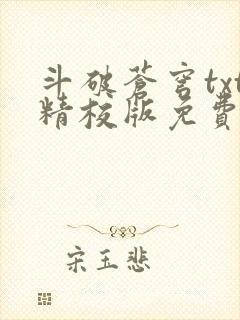 斗破蒼穹txt
精校版免費
宋玉悲